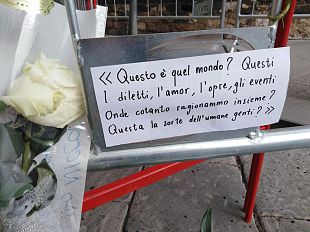 « Questo è quel mondo? Questi
I diletti, l'amor, l'opre, gli eventi
Onde cotanto ragionammo insieme?
Questa la sorte dell'umane genti? »